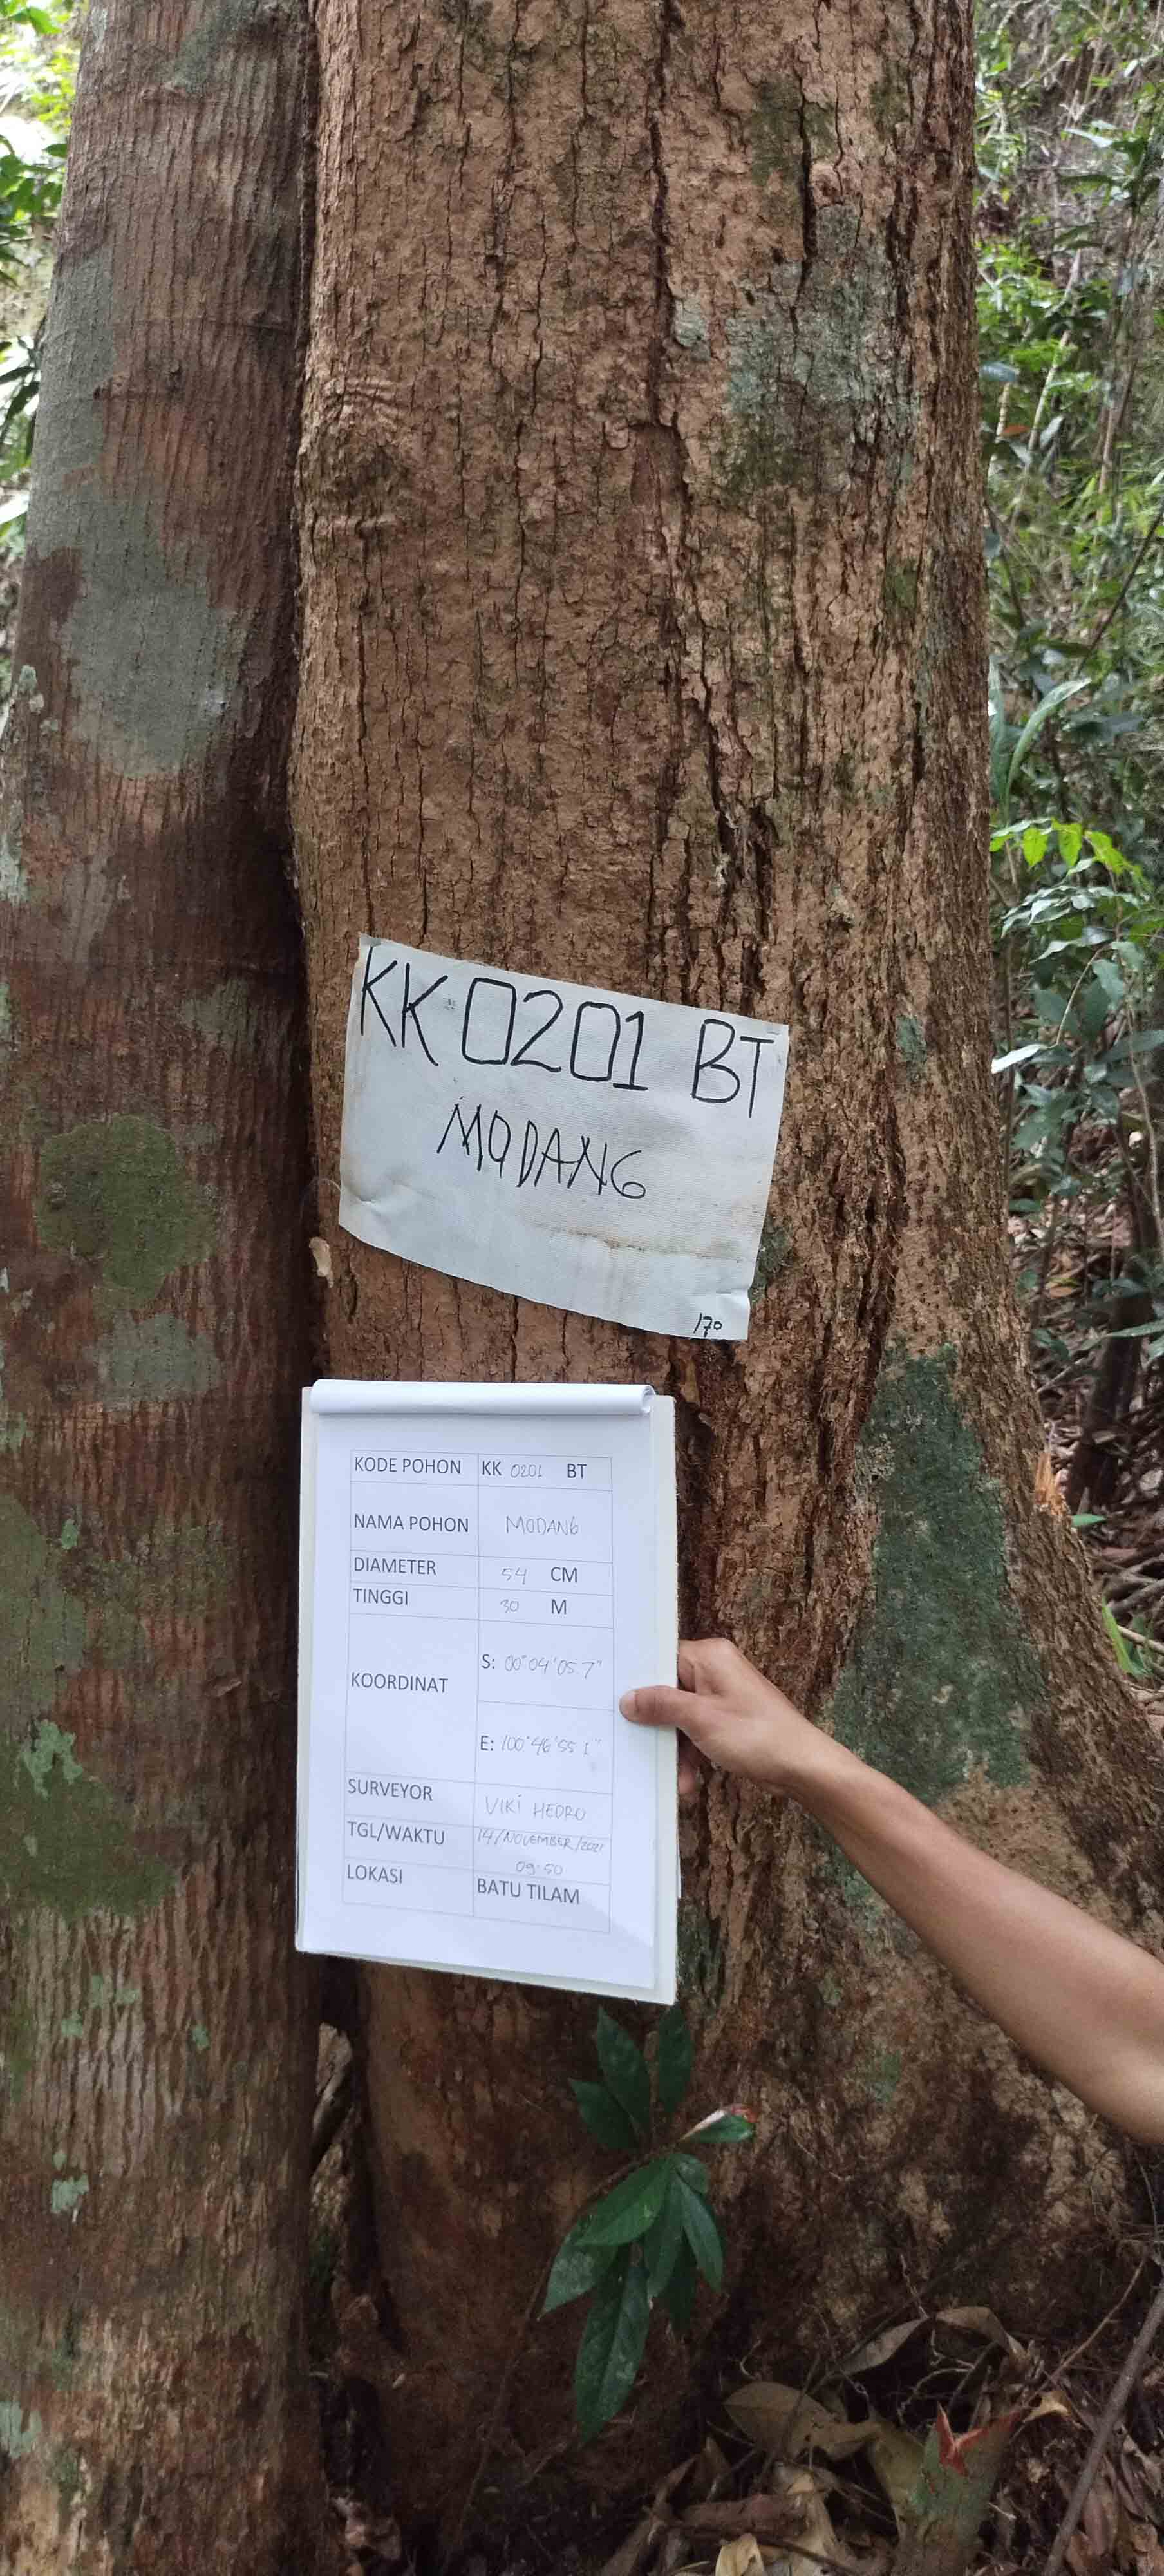 KK 0201 BT
MODANG
170
KODE POHON KK 0201 BT
NAMA POHON MODANG
DIAMETER 54 CM
TINGGI 30 M
KOORDINAT
S: 00°04'05.7"
E: 100°46'55 1"
SURVEYOR VIKI HEDRO
TGL/WAKTU 14/NOVEMBER/2021
09.50
LOKASI BATU TILAM